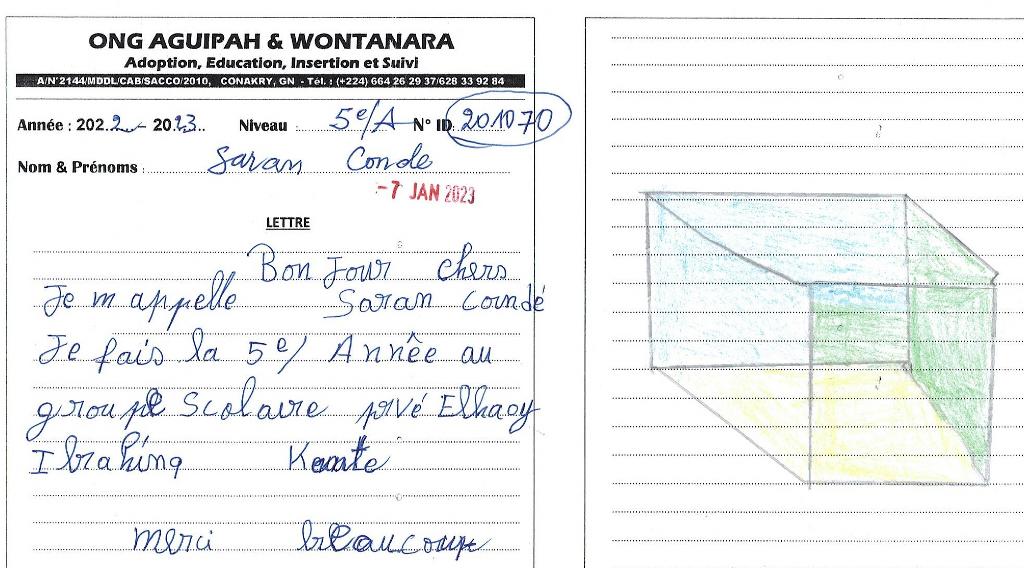 ONG AGUIPAH & WONTANARA
Adoption, Education, Insertion et Suivi
A/N°2144/MDDL/CAB/SACCO/2010, CONAKRY, GN - Tél. : (+224) 664 26 29 37/628 33 92 84
Année : 2022 - 2023 Niveau : 5e/A N° ID 201070
Nom & Prénoms : Saran Conde
-7 JAN 2023
LETTRE
Bon Jour chers
Je m appelle Saran Condé
Je fais la 5e/ Année au
groupe Scolaire privé Elhaoy
Ibrahing Kante
merci beaucoup